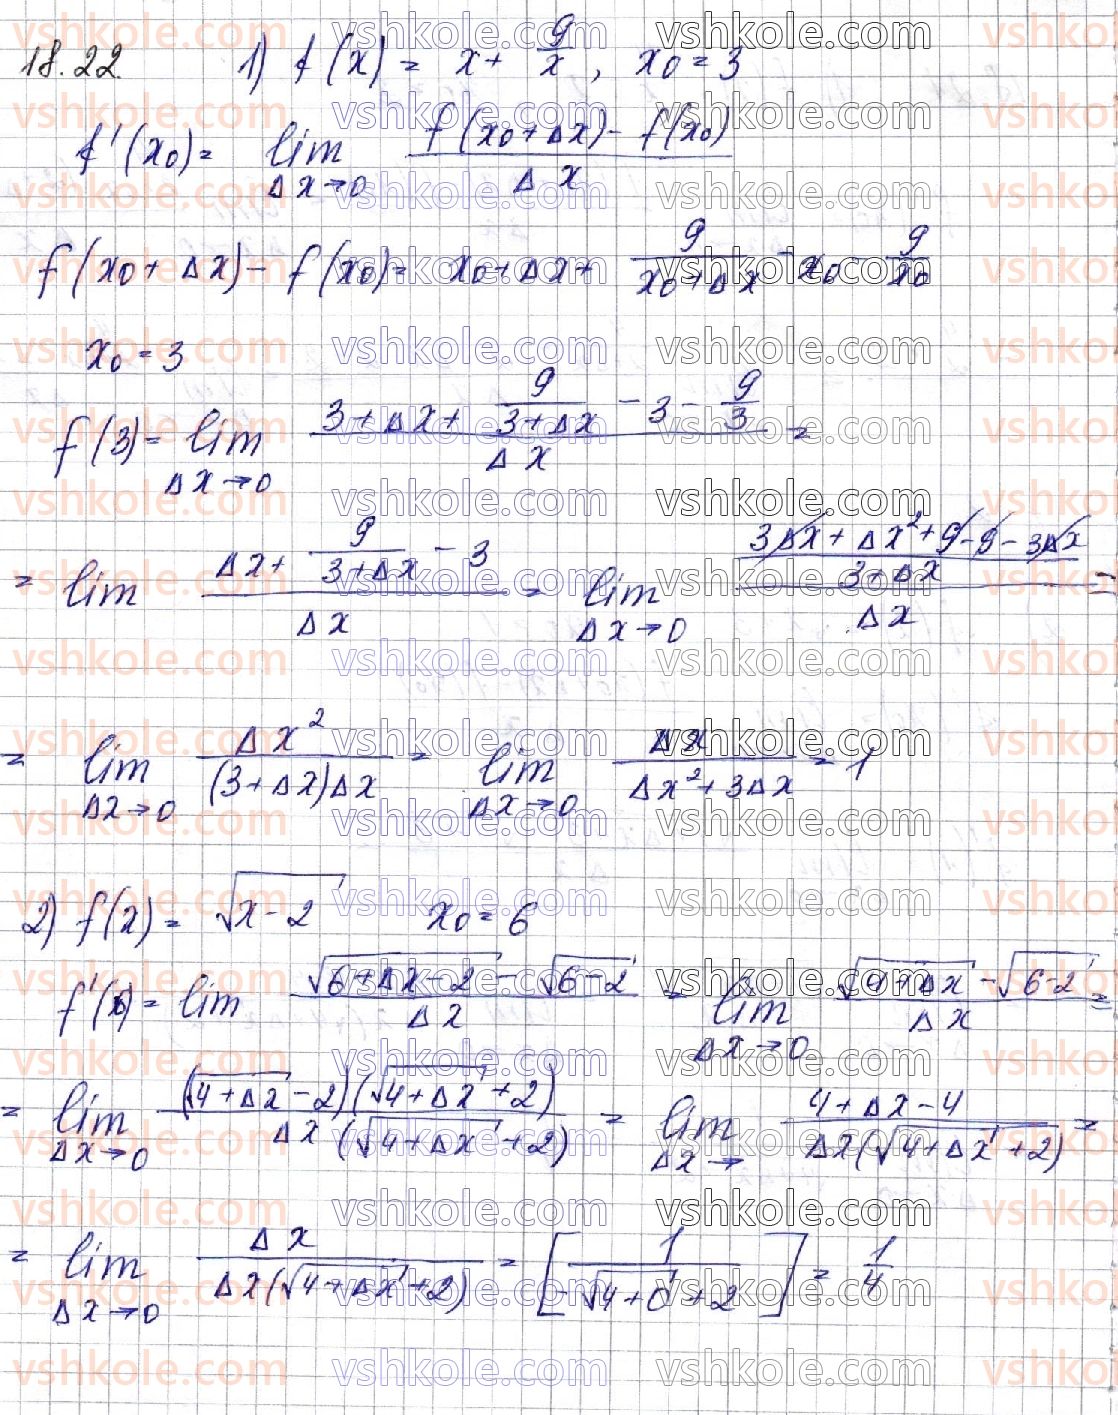 18.22 1) f(x) = x + 9/x, x0 = 3
f'(x0) = lim Δx→0 (f(x0+Δx) - f(x0))/Δx
f(x0+Δx) - f(x0) = x0+Δx+ 9/(x0+Δx) - x0 - 9/x0
x0 = 3
f(3) = lim Δx→0 (3+Δx+ 9/(3+Δx) - 3 - 9/3)/Δx =
= lim (Δx+ 9/(3+Δx) - 3)/Δx = lim Δx→0 ((3Δx + Δx² + 9 - 9 - 3Δx)/(3+Δx))/Δx =
= lim Δx→0 Δx²/((3+Δx)Δx) = lim Δx→0 Δx/(Δx²+3Δx) = 1
2) f(x) = √(x-2) x0 = 6
f'(x) = lim (√(6+Δx-2) - √(6-2))/Δx = lim Δx→0 (√(4+Δx) - √(6-2))/Δx =
= lim Δx→0 ((√(4+Δx) - 2)(√(4+Δx) + 2))/(Δx(√(4+Δx) + 2)) = lim Δx→ (4+Δx-4)/(Δx(√(4+Δx) + 2)) =
= lim Δx→0 Δx/(Δx(√(4+Δx) + 2)) = [1/(√(4+0) + 2)] = 1/4
vshkole.com